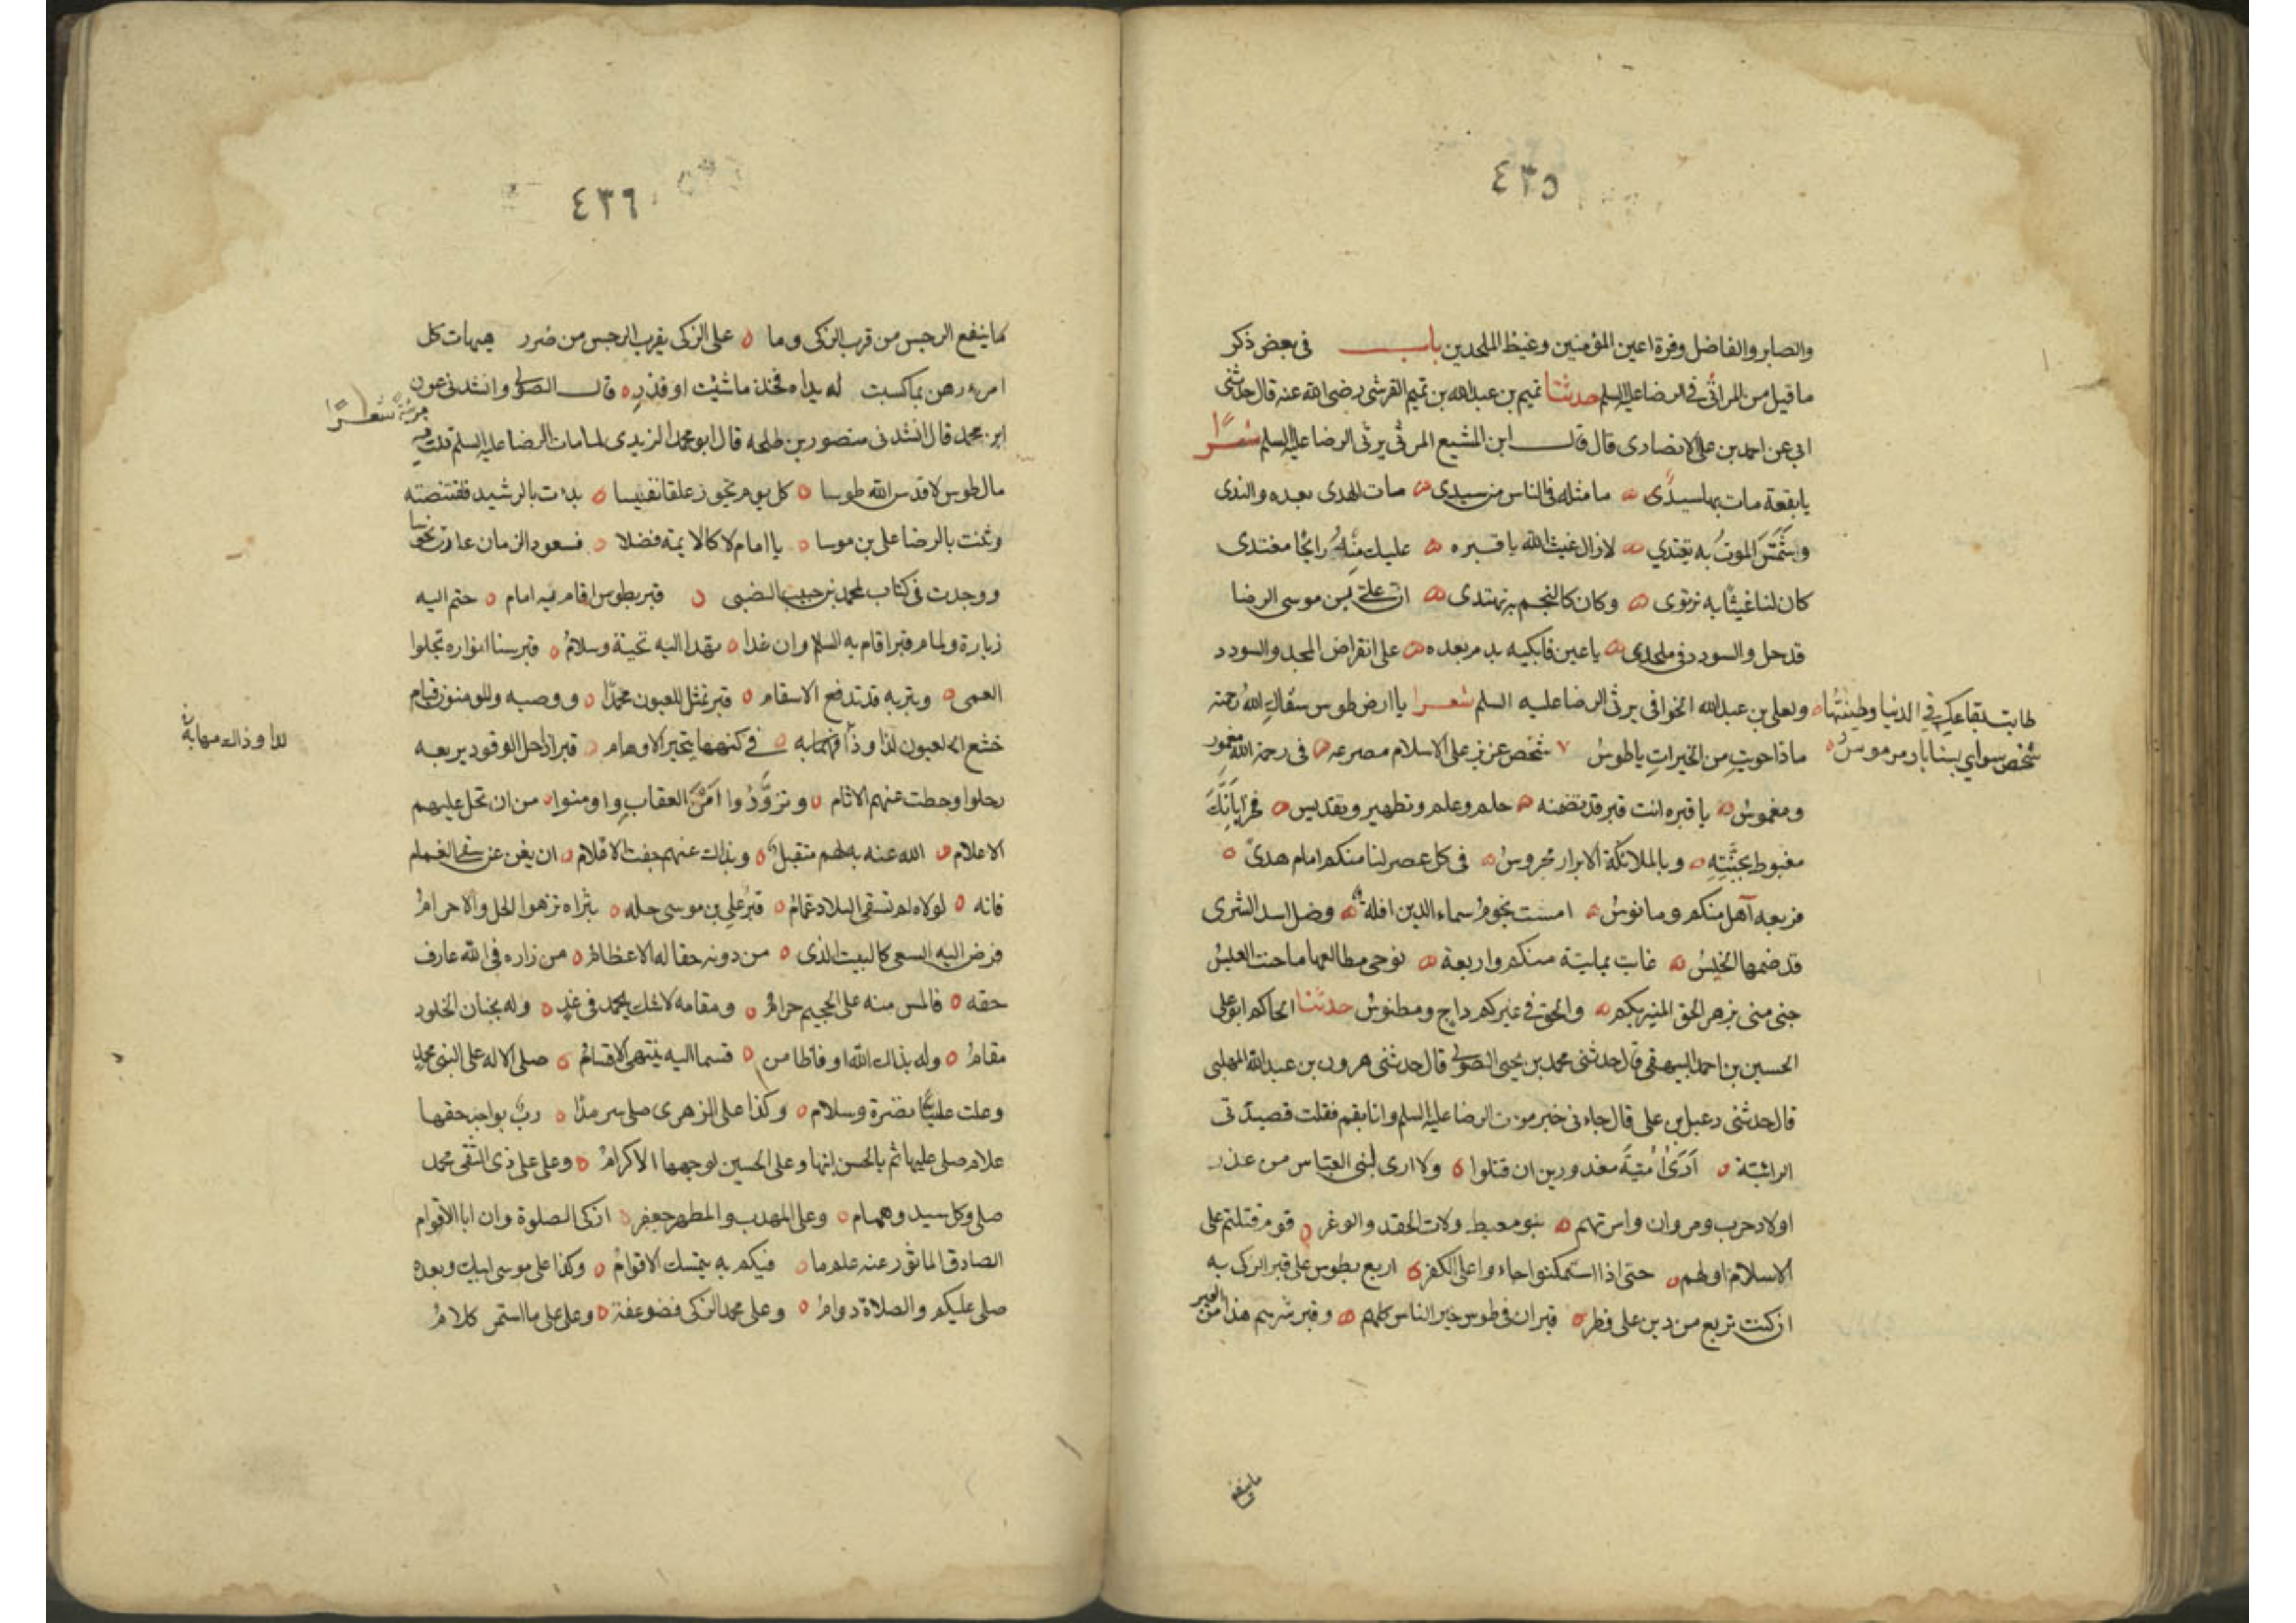 ٤٣٥
والصابر والفاضل وقرة اعين المؤمنين وغيظ الملحدين باب في بعض ذكر
ما قيل من المراثي في الرضا عليه السلم حدثنا تميم بن عبد الله بن تميم القرشي رضي الله عنه قال حدثني
ابي عن احمد بن علي الانصاري قال قال ابن المشيع المرقي يرثي الرضا عليه السلم شعرًا
يا بقعة مات بها سيدي ما مثله في الناس من سيدي مات الهدى بعده والندى
وشمّر الموت به يقتدي لازال غيث الله يا قبره عليك منه رائحا مغتدى
كان لنا غيثا به نرتوى وكان كالنجم به نهتدى ان علي بن موسى الرضا
قد حل والسودد في ملحدى يا عين فابكيه بدم بعده على انقراض المجد والسودد
ولعلي بن عبد الله الخوافي يرثي الرضا عليه السلم شعرا يا ارض طوس سقاك الله رحمته
طابت بقاعك في الدنيا وطيبتها
ماذا حويت من الخيرات يا طوس شخص عزيز على الاسلام مصرعه في رحمة الله مغمور
شخص سواي بسناباد مرموس
ومغموس يا قبره انت قبر قد تضمنه حلم وعلم وتطهير وتقديس فخرا بانك
مغبوط بجثته وبالملائكة الابرار محروس في كل عصر لنا منكم امام هدى
فربعه آهل منكم ومانوس امست نجوم سماء الدين افلة وضل اسد الشرى
قد ضمها الخيس غابت ثمانية منكم واربعة نوحي مطالعها ما حنت العيس
حتى متى يزهر الحق المنير بكم والحق في غيركم داج ومطموس حدثنا الحاكم ابو علي
الحسين بن احمد البيهقي قال حدثني محمد بن يحيى الصولي قال حدثني هرون بن عبد الله المهلبي
قال حدثني دعبل بن علي قال جاءني خبر موت الرضا عليه السلم وانا بقم فقلت قصيدتى
الرائية ارى امية معذورين ان قتلوا ولا ارى لبني العباس من عذر
اولاد حرب ومروان واسرتهم بنو معيط ولات الحقد والوغر قوم قتلتم على
الاسلام اولهم حتى اذا استمكنوا جاءوا على الكفر اربع بطوس على قبر الزكي به
ان كنت تربع من دين على فطر قبران في طوس خير الناس كلهم وقبر شرهم هذا من العبر
ما ينفع
٤٣٦
ما ينفع الرجس من قرب الزكى وما على الزكى بقرب الرجس من ضرر هيهات كل
امرء رهن بما كسبت له يداه فخذ ما شئت او فذر قال الصولي وانشدني عون
ابن محمد قال انشدني منصور بن طلحه قال ابو محمد اليزيدى لما مات الرضا عليه السلم قلت فيه
مرثية شعرًا
مال طوس لا قدس الله طوسا كل يوم تحوز علقا نفيسا بدات بالرشيد فاقتنصته
وثنت بالرضا على بن موسا يا امام لا كالايمة فضلا فسعود الزمان عادت نحوسا
ووجدت في كتاب لمحمد بن حبيب الضبى قبر بطوس اقام فيه امام حتم اليه
زيارة ولمام قبر اقام به السلم وان غدا تهدا اليه تحية وسلام قبر سنا انواره تجلوا
العمى وبتربه قد تدفع الاسقام قبر تمثل للعيون محمدا ووصيه والمومنون قيام
خشع العيون لذا وذا مهابة في كنهها يتحير الاوهام قبر اذا حل الوفود بربعه
لذا وذاك مهابة
رحلوا وحطت عنهم الاثام وتزودوا امن العقاب واومنوا من ان تحل عليهم
الاعلام الله عنه به لهم متقبل وبذاك عنهم جفت الاقلام ان يغن عن سقي الغمام
فانه لولاه لم تسقى البلاد غمام قبر علي بن موسى حله بثراه تزهوا الحل والاحرام
فرض اليه السعى كالبيت الذى من دونه حقا له الاعظام من زاره في الله عارف
حقه فالمس منه على الجحيم حرام ومقامه لا شك يحمد في غد وله بجنان الخلود
مقام وله بذاك الله اوفا ضامن قسما اليه ينتهي الاقسام صلى الاله على النبي محمد
وعلت عليا نضرة وسلام وكذا على الزهرى صلى سرمدا رب بواجب حقها
علام صلى عليها ثم بالحسن ابنها وعلى الحسين لوجهها الاكرام وعلى علي ذى التقى محمد
صلى وكل سيد وهمام وعلى المهذب والمطهر جعفر ازكى الصلوة وان ابا الاقوام
الصادق الماثور عنه علم ما فيكم به يتمسك الاقوام وكذا على موسى ابيك وبعده
صلى عليكم والصلاة دوام وعلى محمد الزكى فضوعفة وعلى علي ما استمر كلام